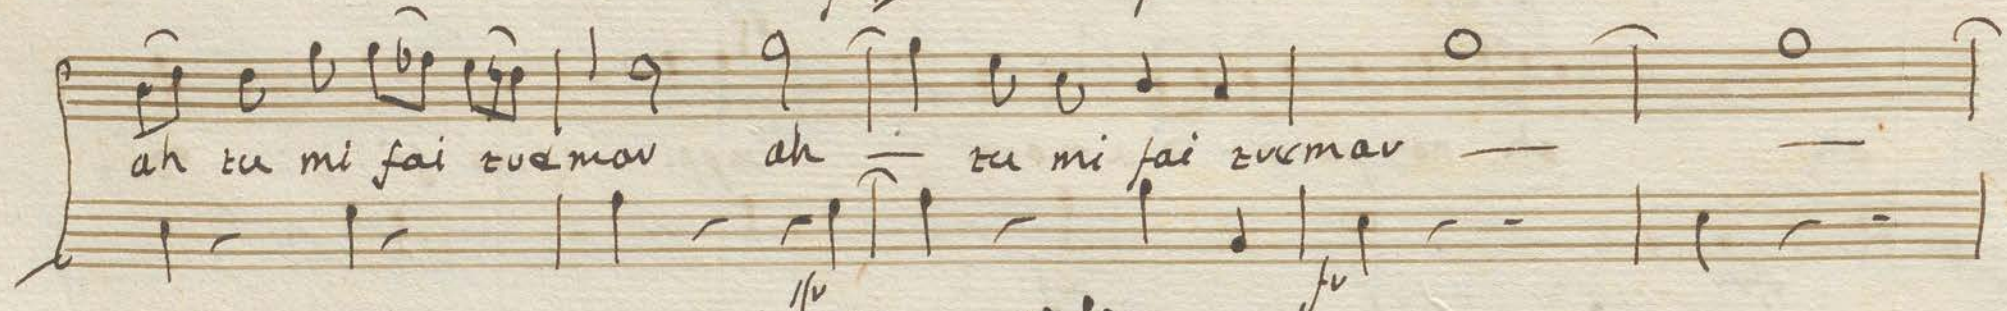 ah tu mi fai tremar ah — tu mi fai tremar — —
sfr fr